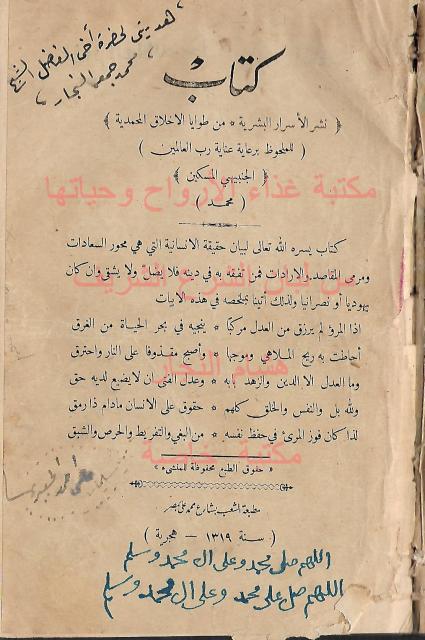 هديتي لحضرة أخي الفاضل الشيخ
محمد جمعه النجار
كتاب
﴿ نشر الأسرار البشرية * من طوايا الاخلاق المحمدية ﴾
( للملحوظ برعاية عناية رب العالمين )
﴿ الجنبيهي المسكين ﴾
( محمد )
مكتبة غذاء الأرواح وحياتها
كتاب يسره الله تعالى لبيان حقيقة الانسانية التي هي محور السعادات
ومرمى المقاصد والارادات فمن تفقه به في دينه فلا يضل ولا يشقى وان كان
يهوديا أو نصرانيا ولذلك أتينا بملخصه في هذه الابيات
اذا المرؤ لم يرزق من العدل مركبا * ينجيه في بحر الحياة من الغرق
أحاطت به ريح الملاهي وموجها * وأصبح مقذوفا على النار واحترق
هشام النجار
وما العدل الا الدين والزهد بابه * وعدل الفتى ان لا يضيع لديه حق
ولله بل والنفس والخلق كلهم * حقوق على الانسان مادام ذا رمق
لذا كان فوز المرئ في حفظ نفسه * من البغي والتفريط والحرص والشبق
مكتبة خاصة
« حقوق الطبع محفوظة للمنشىء »
مطبعة الشعب بشارع محمد علي بمصر
( سنة ١٣١٩ - هجرية )
اللهم صلى محمد وعلى ال محمد وسلم
اللهم صل على محمد وعلى ال محمد وسلم